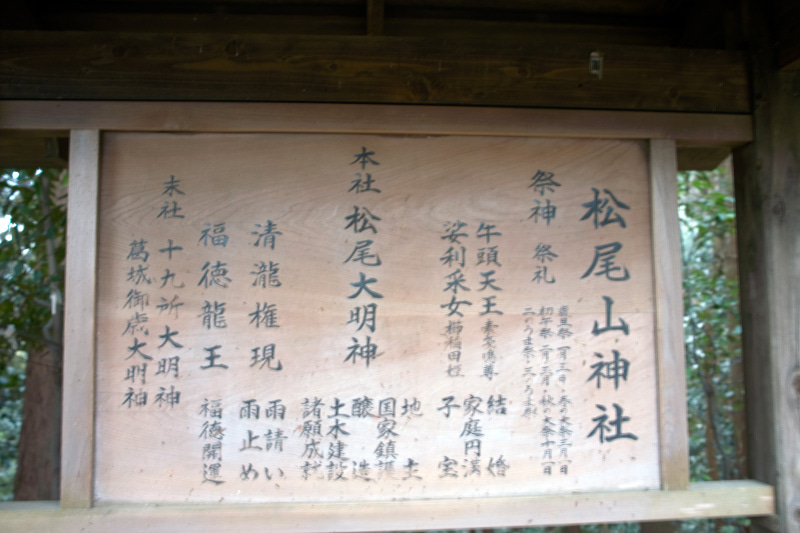 松尾山神社
祭神 祭礼
歳旦祭 一月三日・春の大祭三月一日
初午祭 二月三月・秋の大祭十月一日
二のうま祭・三のうま祭
牛頭天王 素戔嗚尊 結婚
家庭円満
娑利采女 櫛稲田姫 子宝
本社 松尾大明神 地主
国家鎮護
醸造
土木建設
諸願成就
清瀧権現 雨請い
雨止め
福徳龍王 福徳開運
末社 十九所大明神
葛城御歳大明神